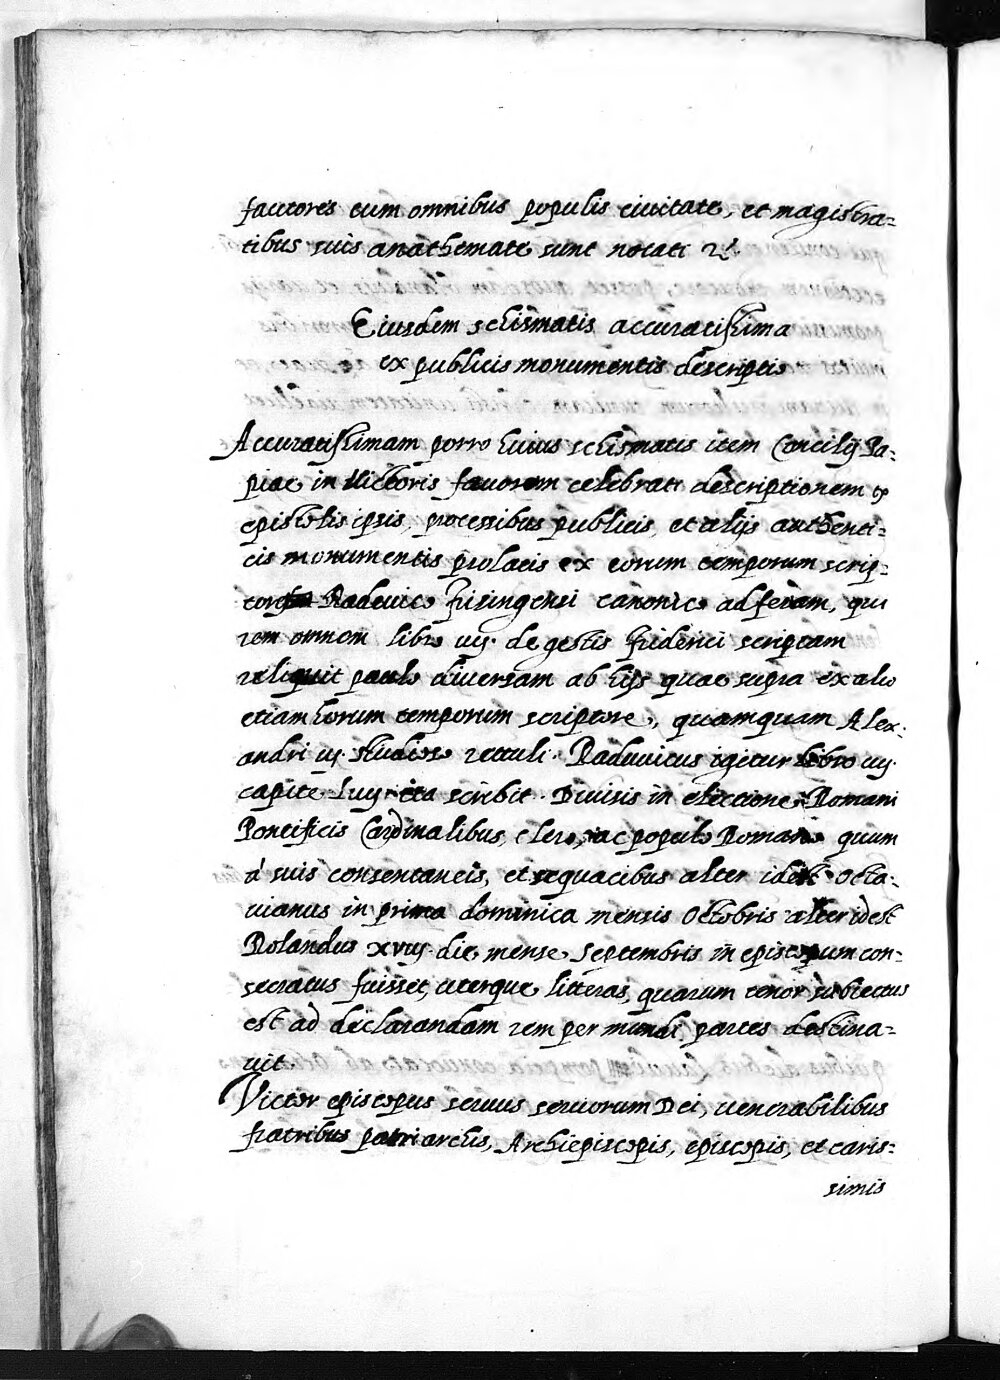 fautores cum omnibus populis ciuitate, et magistra=
tibus suis anathemate sunt notati &.
Eiusdem schismatis accuratissima
ex publicis monumentis descriptio
Accuratissimam porro huius schismatis item Concilij Pa=
piae in Victoris fauorem celebrati descriptionem ex
epistolis ipsis, processibus publicis, et alijs authenti=
cis monumentis prolatis ex eorum temporum scrip=
tore Radeuico Frisingensi canonico adferam, qui
rem omnem libro iiij. de gestis Friderici scriptam
reliquit paulo diuersam ab hijs quae supra ex alio
etiam horum temporum scriptore, quamquam Alex=
andri iij studioso rettuli. Radeuicus igitur libro iiij.
capite Luij ita scribit. Diuisis in electione Romani
Pontificis Cardinalibus, clero, ac populo Romano quum
à suis consentaneis, et sequacibus alter idest Octa=
uianus in prima dominica mensis Octobris alter idest
Rolandus xviij. die, mense, septembris in episcopum con=
secratus fuisset, uterque litteras, quarum tenor subiectus
est ad declarandam rem per mundi partes destina=
uit.
Victor episcopus seruus seruorum Dei, uenerabilibus
fratribus patriarchis, Archiepiscopis, episcopis, et caris=
simis